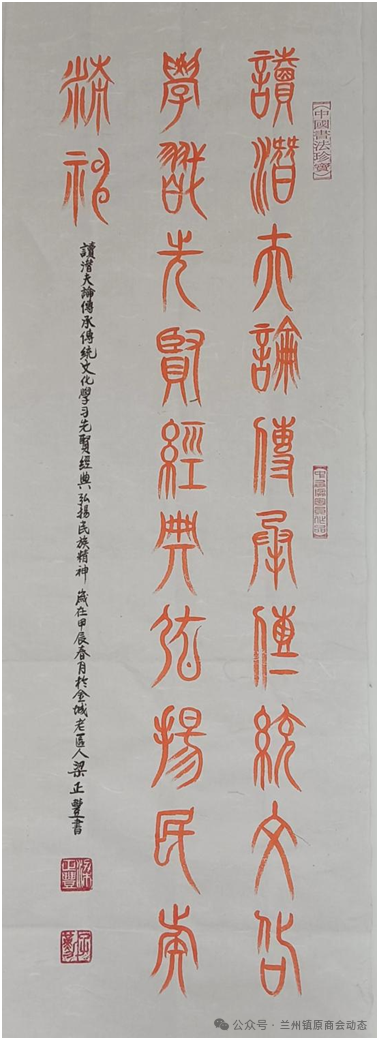 【中國書法珍寶】
讀潛夫論傳承傳統文化
學習先賢經典弘揚民族
精神
讀潛夫論傳承傳統文化學习先賢經典弘揚民族精神 歲在甲辰春月於金城老區人梁正豐書
公众号 · 兰州镇原商会动态